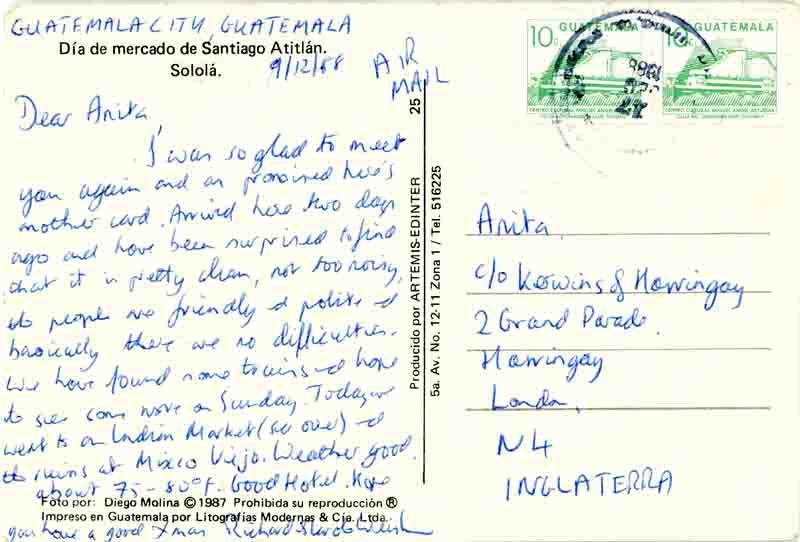 GUATEMALA CITY, GUATEMALA
Día de mercado de Santiago Atitlán.
Sololá.
9/12/88
AIR
MAIL
Dear Anita,
I was so glad to meet
you again and as promised here's
another card. Arrived here two days
ago and have been surprised to find
that it is pretty clean, not too noisy,
people are friendly & polite &
basically there are no difficulties.
We have found some trains & hope
to see some more on Sunday. Today we
went to an Indian Market (see over) &
ruins at Mixco Viejo. Weather good.
about 75-80°F. Good Hotel. Hope
you have a good Xmas Richard
Foto por: Diego Molina © 1987 Prohibida su reproducción ®
Impreso en Guatemala por Litografías Modernas & Cía. Ltda.
Producido por ARTEMIS-EDINTER 25
5a. Av. No. 12-11 Zona 1 / Tel. 516225
10c GUATEMALA
GUATEMALA
1988
Anita,
c/o Kerwins of Harringay
2 Grand Parade,
Harringay
London,
N4
INGLATERRA